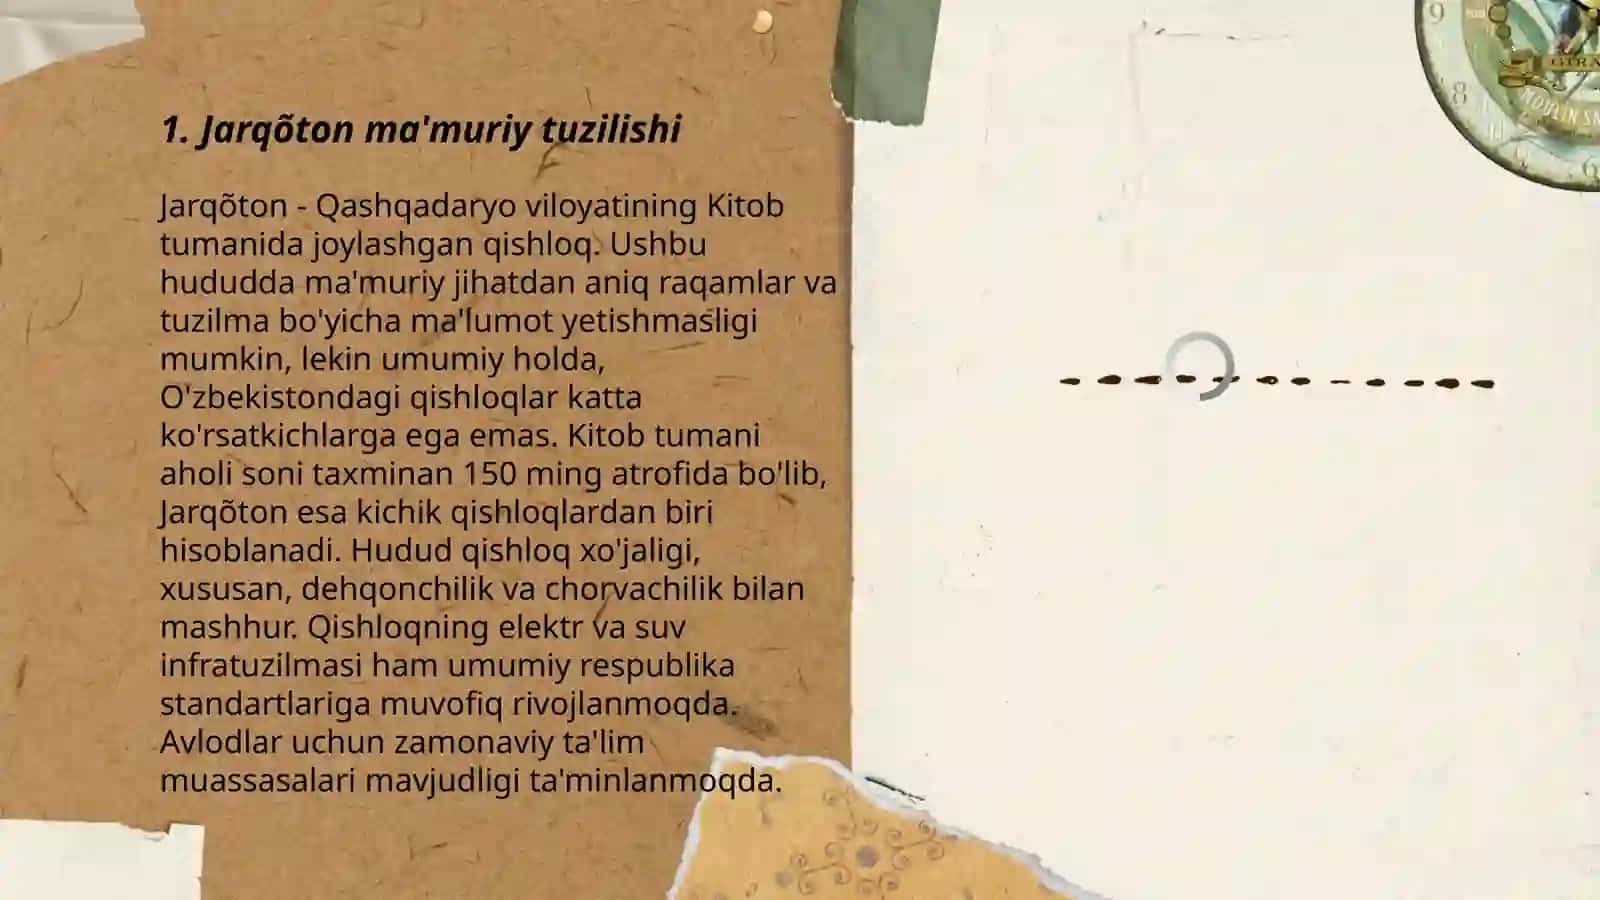 1. Jarqõton ma'muriy tuzilishi
Jarqõton - Qashqadaryo viloyatining Kitob
tumanida joylashgan qishloq. Ushbu
hududda ma'muriy jihatdan aniq raqamlar va
tuzilma bo'yicha ma'lumot yetishmasligi
mumkin, lekin umumiy holda,
O'zbekistondagi qishloqlar katta
ko'rsatkichlarga ega emas. Kitob tumani
aholi soni taxminan 150 ming atrofida bo'lib,
Jarqõton esa kichik qishloqlardan biri
hisoblanadi. Hudud qishloq xo'jaligi,
xususan, dehqonchilik va chorvachilik bilan
mashhur. Qishloqning elektr va suv
infratuzilmasi ham umumiy respublika
standartlariga muvofiq rivojlanmoqda.
Avlodlar uchun zamonaviy ta'lim
muassasalari mavjudligi ta'minlanmoqda.
9
8
6
MOULIN